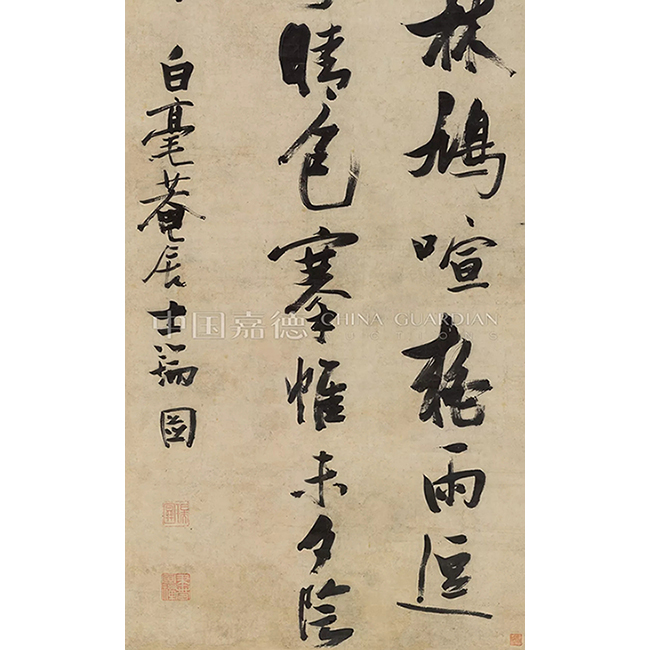 林鳩喧雨
晴色搴帷未夕陰
白毫菴居士瑞圖
中国嘉德 CHINA GUARDIAN